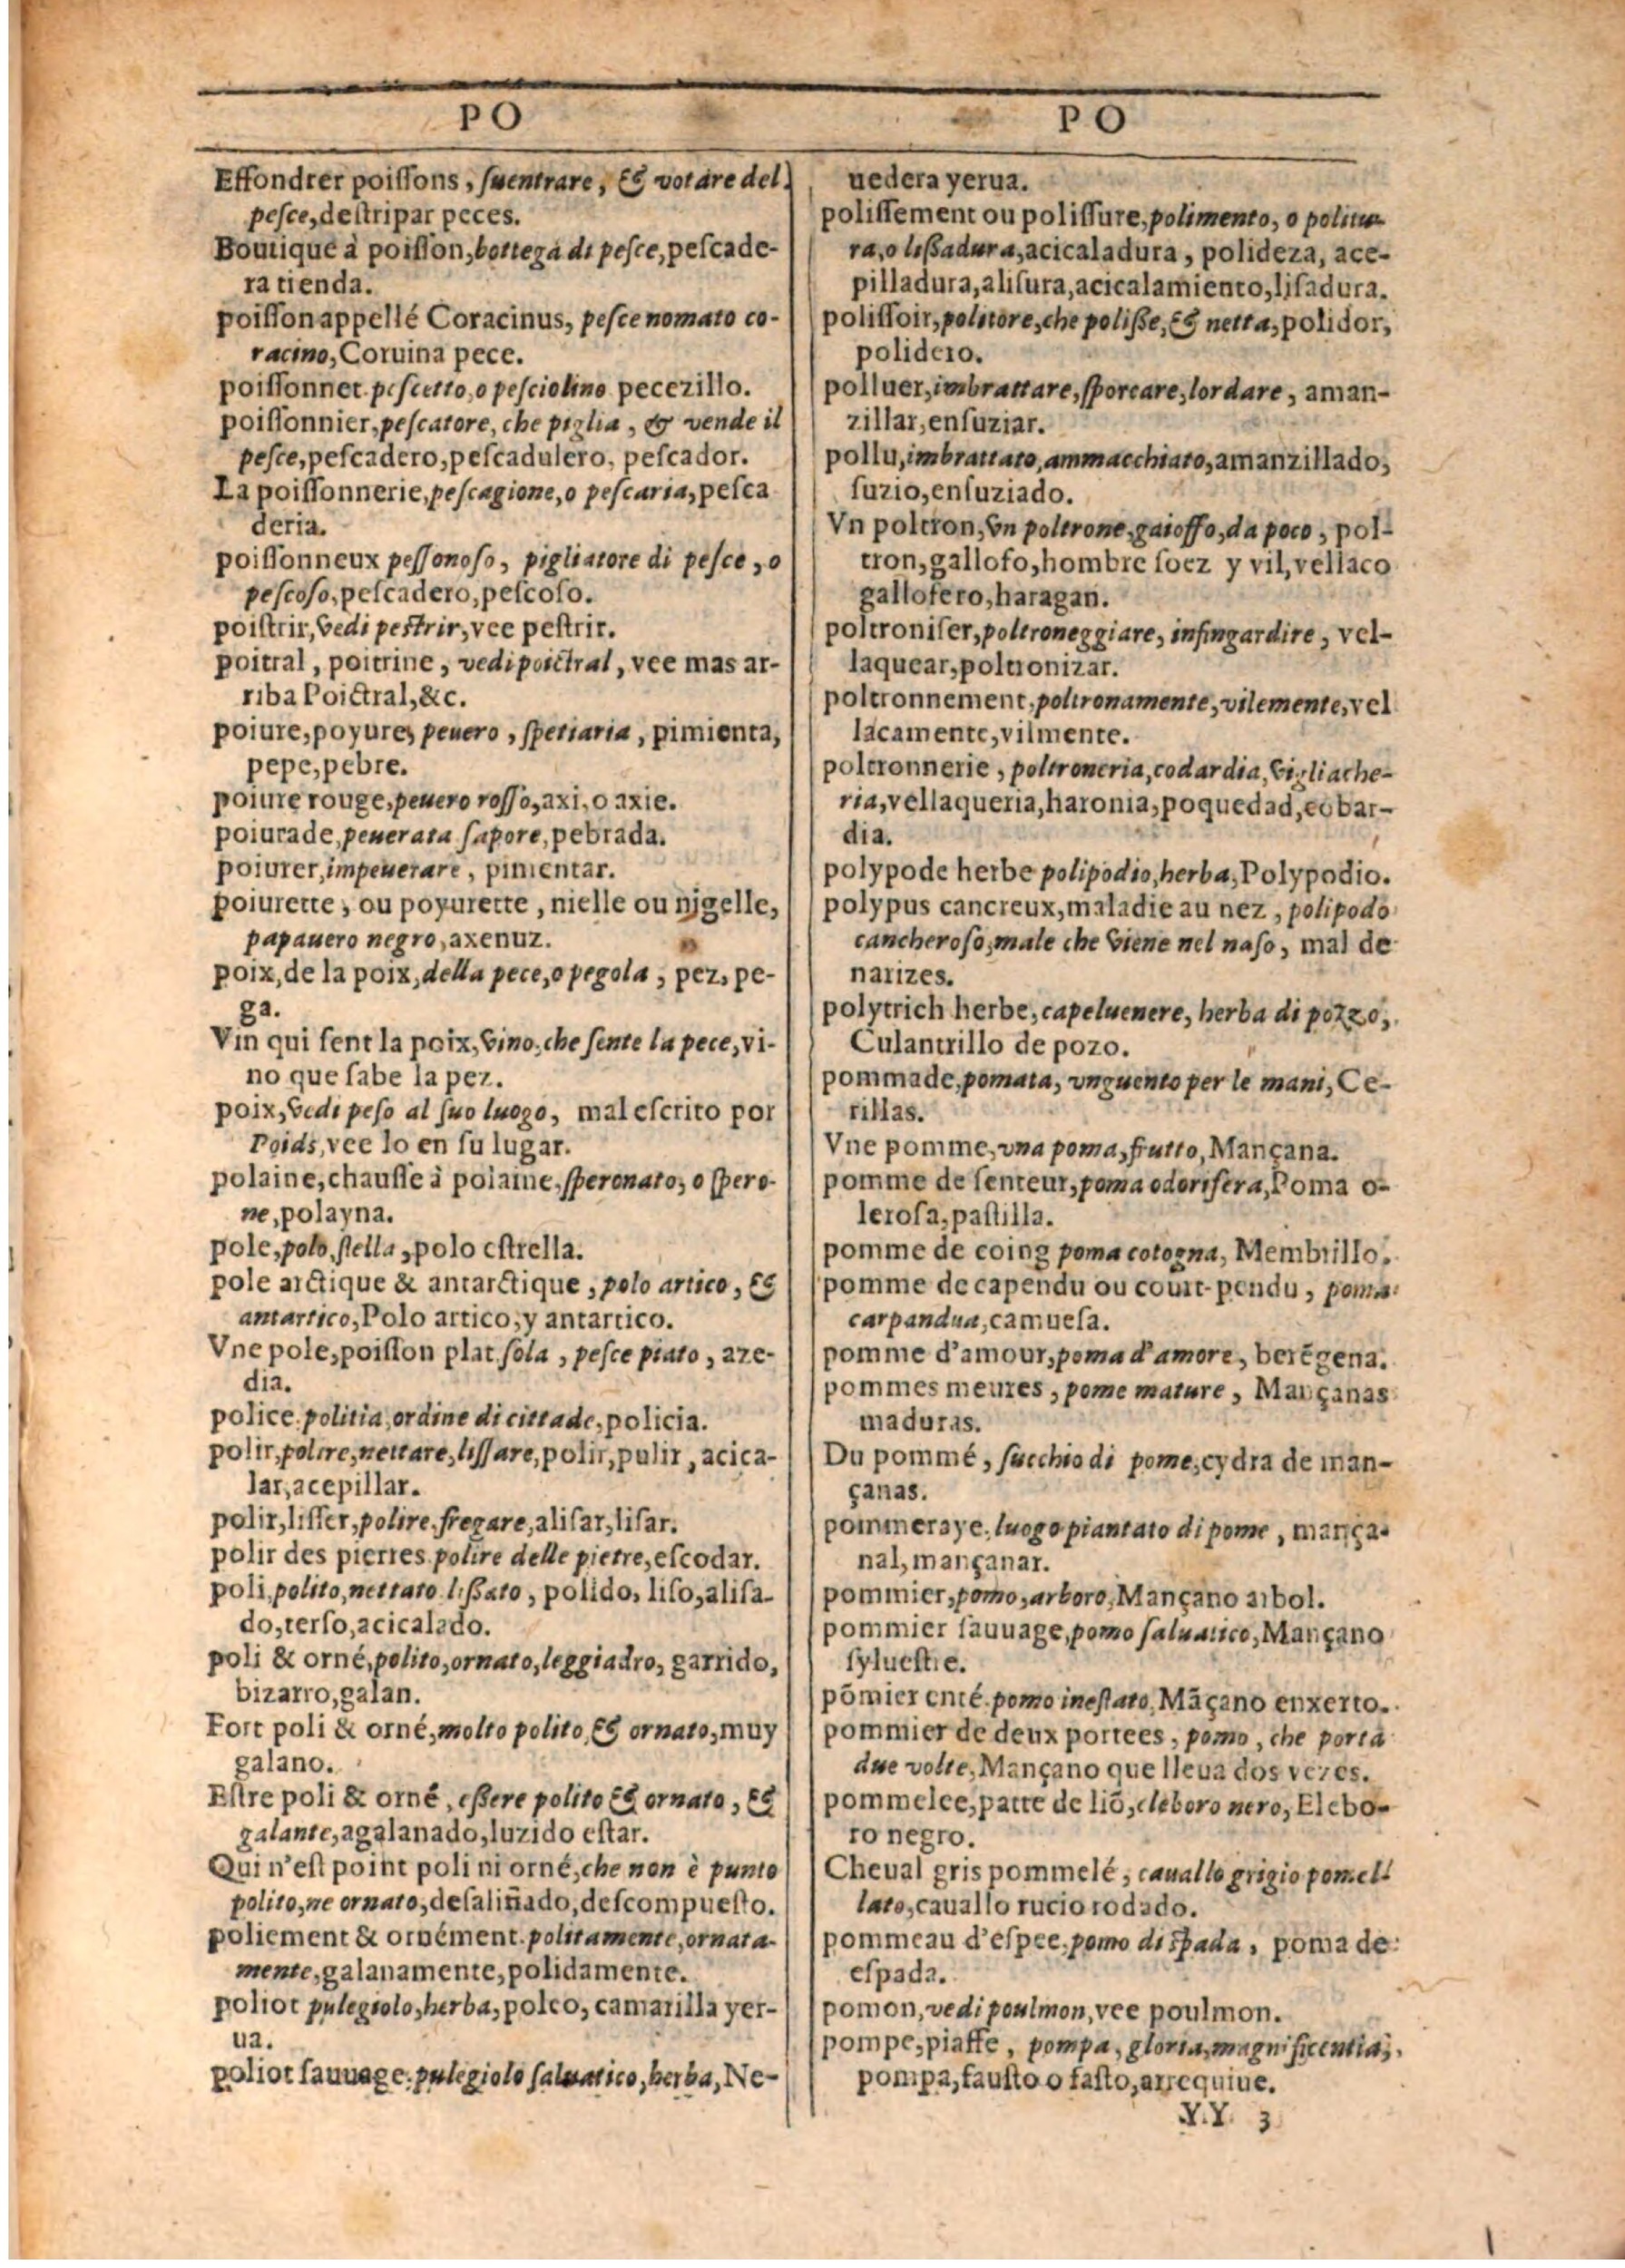 PO
Effondrer poiſſons, ſuentrare, & votare del
peſce, deſtripar peces.
Boutique à poiſſon, bottega di peſce, peſcade-
ra tienda.
poiſſon appellé Coracinus, peſce nomato co-
racino, Coruina pece.
poiſſonnet. peſcetto, o peſciolino pecezillo.
poiſſonnier, peſcatore, che piglia, & vende il
peſce, peſcadero, peſcadulero, peſcador.
La poiſſonnerie, peſcagione, o peſcaria, peſca
deria.
poiſſonneux peſſonoſo, pigliatore di peſce, o
peſcoſo, peſcadero, peſcoſo.
poiſtrir, vedi peſtrir, vee peſtrir.
poitral, poitrine, vedi poictral, vee mas ar-
riba Poictral, &c.
poiure, poyure, peuero, ſpetiaria, pimienta,
pepe, pebre.
poiure rouge, peuero roſſo, axi, o axie.
poiurade, peuerata ſapore, pebrada.
poiurer, impeuerare, pimentar.
poiurette, ou poyurette, nielle ou nigelle,
papauero negro, axenuz.
poix, de la poix, della pece, o pegola, pez, pe-
ga.
Vin qui ſent la poix, vino, che ſente la pece, vi-
no que ſabe la pez.
poix, vedi peſo al ſuo luogo, mal eſcrito por
Poids, vee lo en ſu lugar.
polaine, chauſſe à polaine, ſperonato, o ſpero-
ne, polayna.
pole, polo, ſtella, polo eſtrella.
pole arctique & antarctique, polo artico, &
antartico, Polo artico, y antartico.
Vne pole, poiſſon plat. ſola, peſce piato, aze-
dia.
police. politia, ordine di cittade, policia.
polir, polire, nettare, liſſare, polir, pulir, acica-
lar, acepillar.
polir, liſſer, polire, fregare, aliſar, liſar.
polir des pierres. polire delle pietre, eſcodar.
poli, polito, nettato lißato, polido, liſo, aliſa-
do, terſo, acicalado.
poli & orné, polito, ornato, leggiadro, garrido,
bizarro, galan.
Fort poli & orné, molto polito, & ornato, muy
galano.
Eſtre poli & orné, eßere polito & ornato, &
galante, agalanado, luzido eſtar.
Qui n'eſt point poli ni orné, che non è punto
polito, ne ornato, deſaliñado, deſcompueſto.
poliement & ornément. politamente, ornata-
mente, galanamente, polidamente.
poliot pulegiolo, herba, poleo, camarilla yer-
ua.
poliot ſauuage. pulegiolo ſaluatico, herba, Ne-
PO
uedera yerua.
poliſſement ou poliſſure, polimento, o politu-
ra, o lißadura, acicaladura, polideza, ace-
pilladura, aliſura, acicalamiento, liſadura.
poliſſoir, politore, che poliße, & netta, polidor,
polidero.
polluer, imbrattare, ſporcare, lordare, aman-
zillar, enſuziar.
pollu, imbrattato, ammacchiato, amanzillado,
ſuzio, enſuziado.
Vn poltron, vn poltrone, gaioffo, da poco, pol-
tron, gallofo, hombre ſoez y vil, vellaco
gallofero, haragan.
poltroniſer, poltroneggiare, infingardire, vel-
laquear, poltronizar.
poltronnement, poltronamente, vilemente, vel
lacamente, vilmente.
poltronnerie, poltroneria, codardia, vigliache-
ria, vellaqueria, haronia, poquedad, cobar-
dia.
polypode herbe polipodio, herba, Polypodio.
polypus cancreux, maladie au nez, polipodo
cancheroſo, male che viene nel naſo, mal de
narizes.
polytrich herbe, capeluenere, herba di pozzo,
Culantrillo de pozo.
pommade, pomata, vnguento per le mani, Ce-
rillas.
Vne pomme, vna poma, frutto, Mançana.
pomme de ſenteur, poma odorifera, Poma o-
leroſa, paſtilla.
pomme de coing poma cotogna, Membrillo.
pomme de capendu ou court-pendu, poma
carpandua, camueſa.
pomme d'amour, poma d'amore, berẽgena.
pommes meures, pome mature, Mançanas
maduras.
Du pommé, ſucchio di pome, cydra de man-
çanas.
pommeraye, luogo piantato di pome, mança-
nal, mançanar.
pommier, pomo, arboro, Mançano arbol.
pommier ſauuage, pomo ſaluatico, Mançano
ſylueſtre.
põmier enté. pomo ineſtato, Mãçano enxerto.
pommier de deux portees, pomo, che porta
due volte, Mançano que lleua dos vezes.
pommelee, patte de liõ, eleboro nero, Elebo-
ro negro.
Cheual gris pommelé, cauallo grigio pomel-
lato, cauallo rucio rodado.
pommeau d'eſpee, pomo di ſpada, poma de
eſpada.
pomon, vedi poulmon, vee poulmon.
pompe, piaffe, pompa, gloria, magnificentia,
pompa, fauſto o faſto, arrequiue.
YY 3